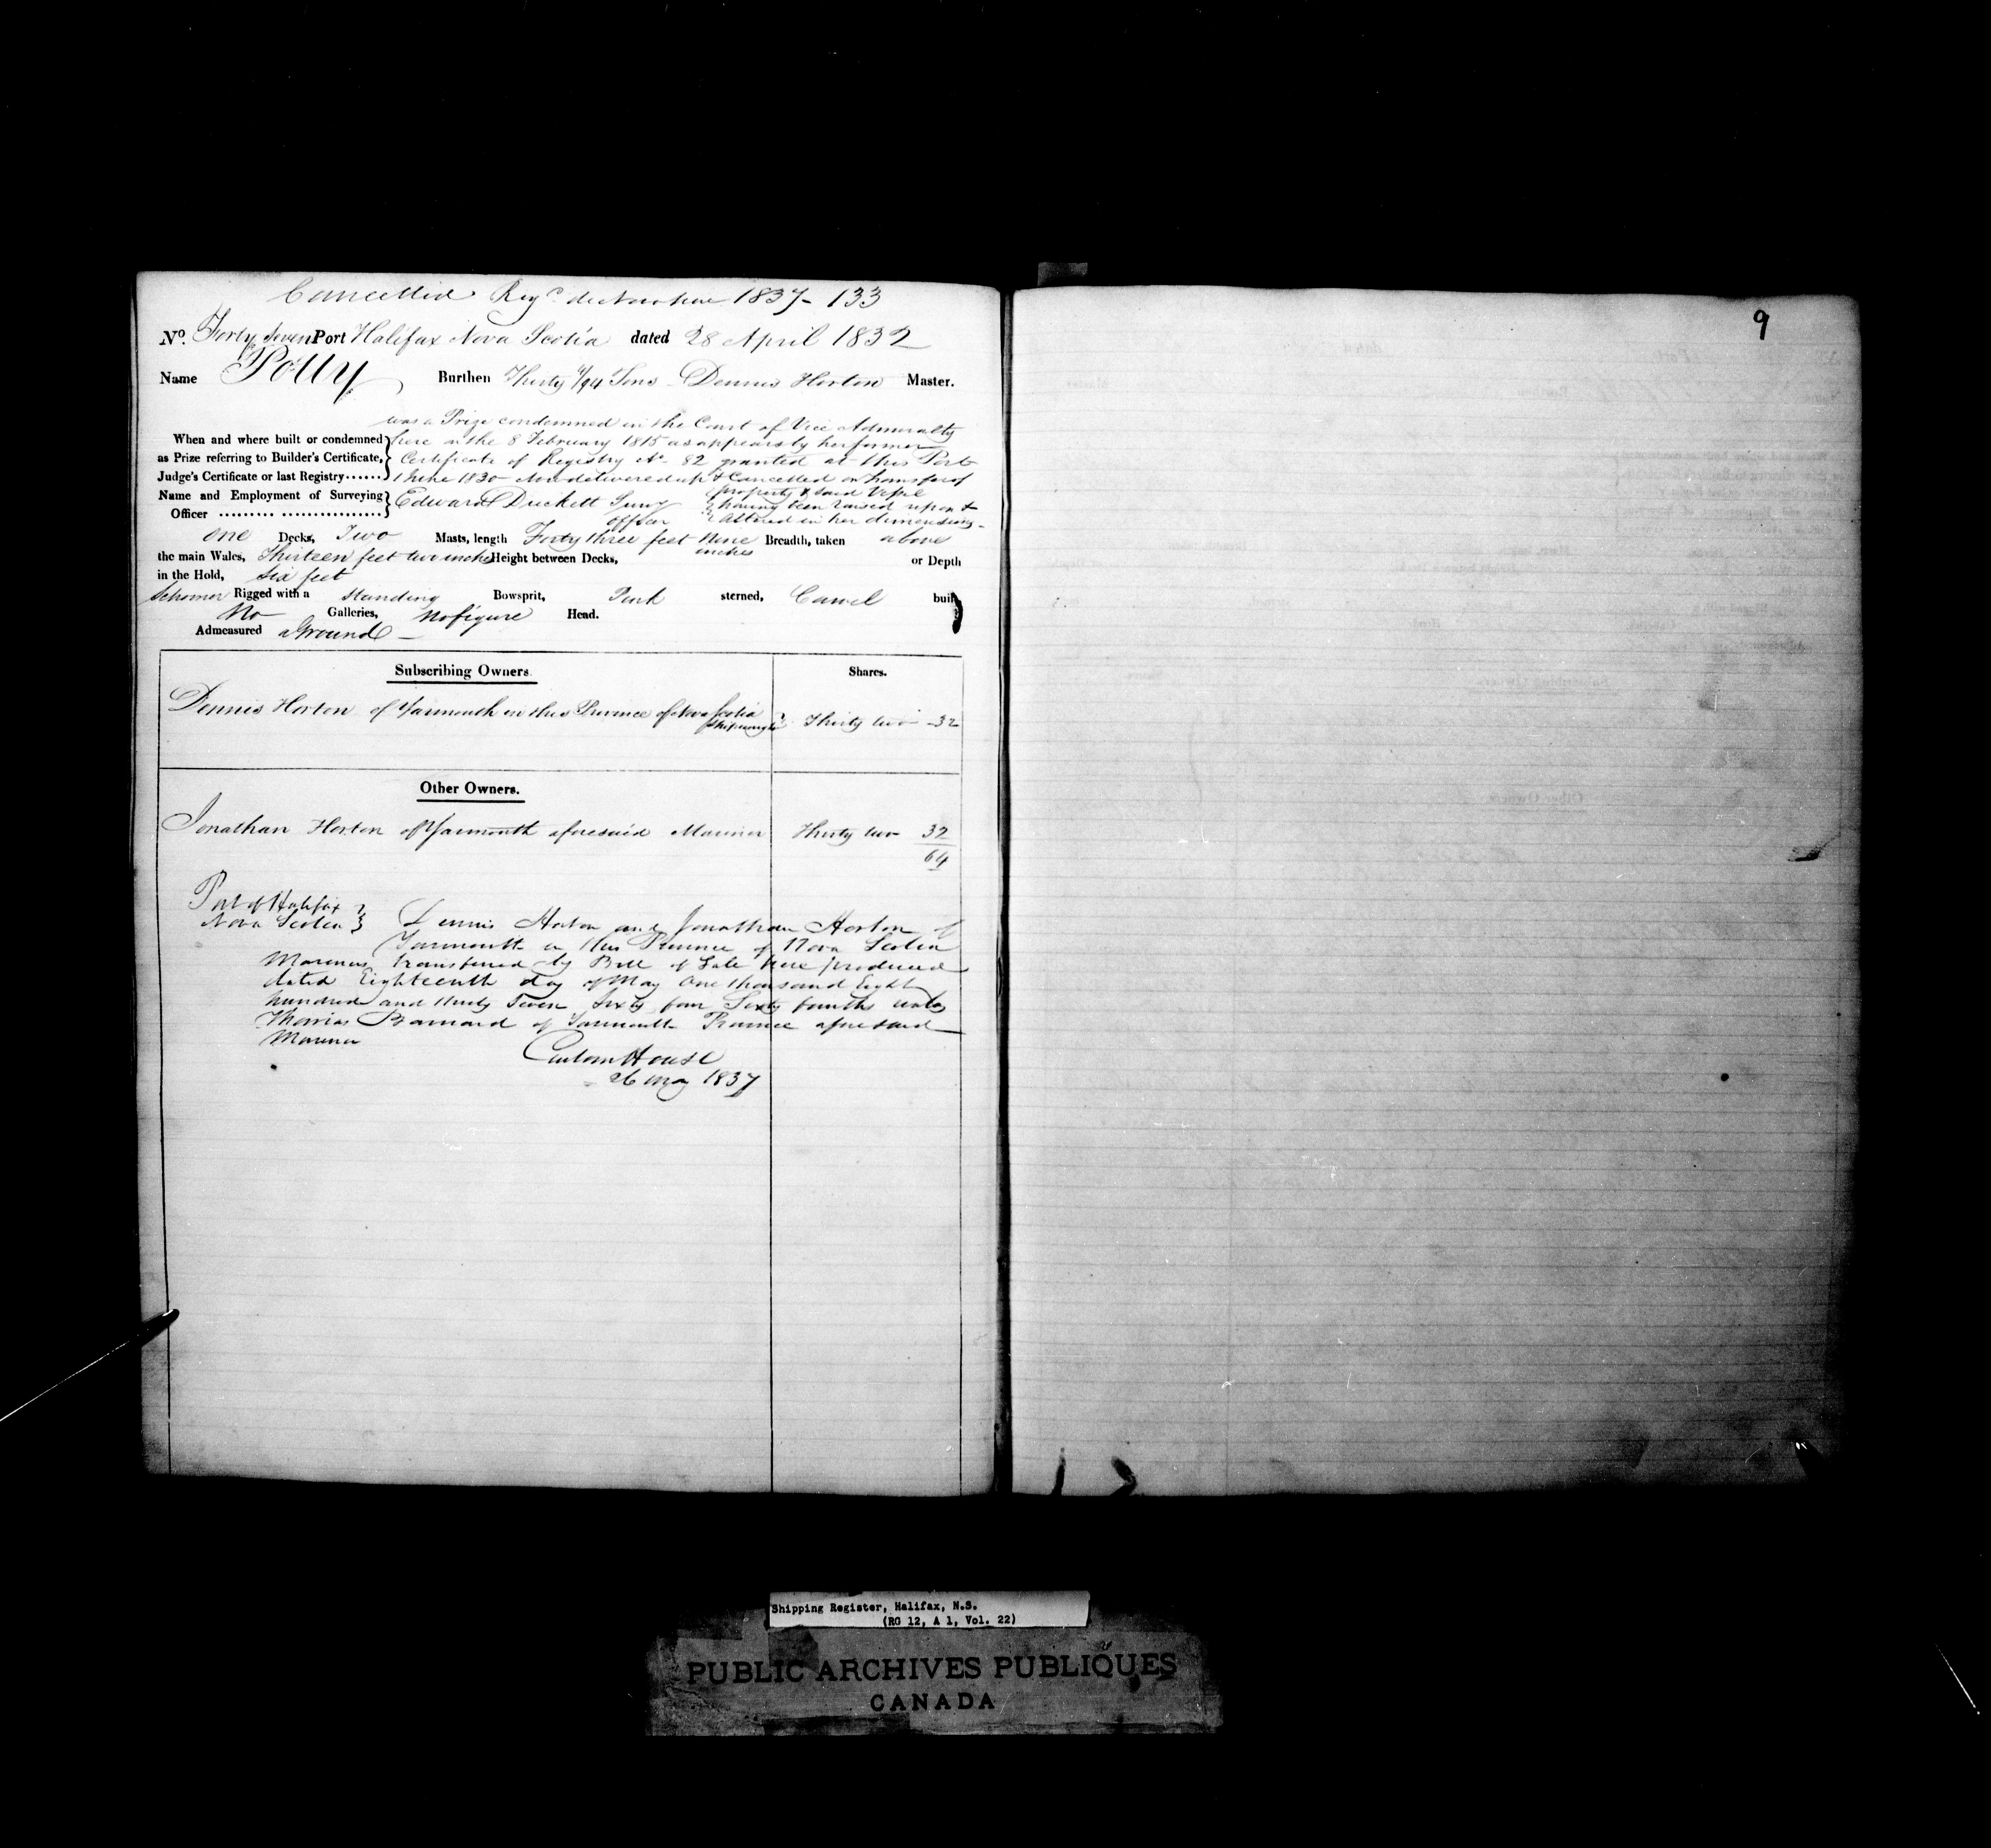 Cancelled Regd de Novo here 1837 - 133
No. Forty Seven Port Halifax Nova Scotia dated 28 April 1832
Name Polly Burthen Thirty /94 Tons Dennis Horton Master.
was a Prize condemned in the Court of Vice Admiralty
When and where built or condemned here on the 8 February 1815 as appears by her former
as Prize referring to Builder's Certificate, Certificate of Registry No. 82 granted at this Port
Judge's Certificate or last Registry...... 1830 now delivered up & Cancelled on transfer of
property & said Vessel
Name and Employment of Surveying Edward Duckett Survg having been raised upon &
Officer ......... ................. officer altered in her dimensions -
one Decks, Two Masts, length Forty three feet Nine inches Breadth, taken above
the main Wales, Thirteen feet two inches Height between Decks, or Depth
in the Hold, six feet
Schooner Rigged with a standing Bowsprit, Pink sterned, Carvel built
No Galleries, No figure Head.
Admeasured aground -
Subscribing Owners Shares.
Dennis Horton of Yarmouth in this Province of Nova Scotia
Shipwright Thirty two - 32
Other Owners.
Jonathan Horton of Yarmouth aforesaid Mariner Thirty two 32
64
Port of Halifax
Nova Scotia Dennis Horton and Jonathan Horton of
Yarmouth in this Province of Nova Scotia
Mariners transferred by Bill of Sale here produced
dated Eighteenth day of May One thousand Eight
hundred and thirty Seven Sixty four Sixty fourths unto
Thomas Barnard of Yarmouth Province aforesaid
Mariner
Custom House
26 May 1837
9
Shipping Register, Halifax, N.S.
(RG 12, A 1, Vol. 22)
PUBLIC ARCHIVES PUBLIQUES
CANADA